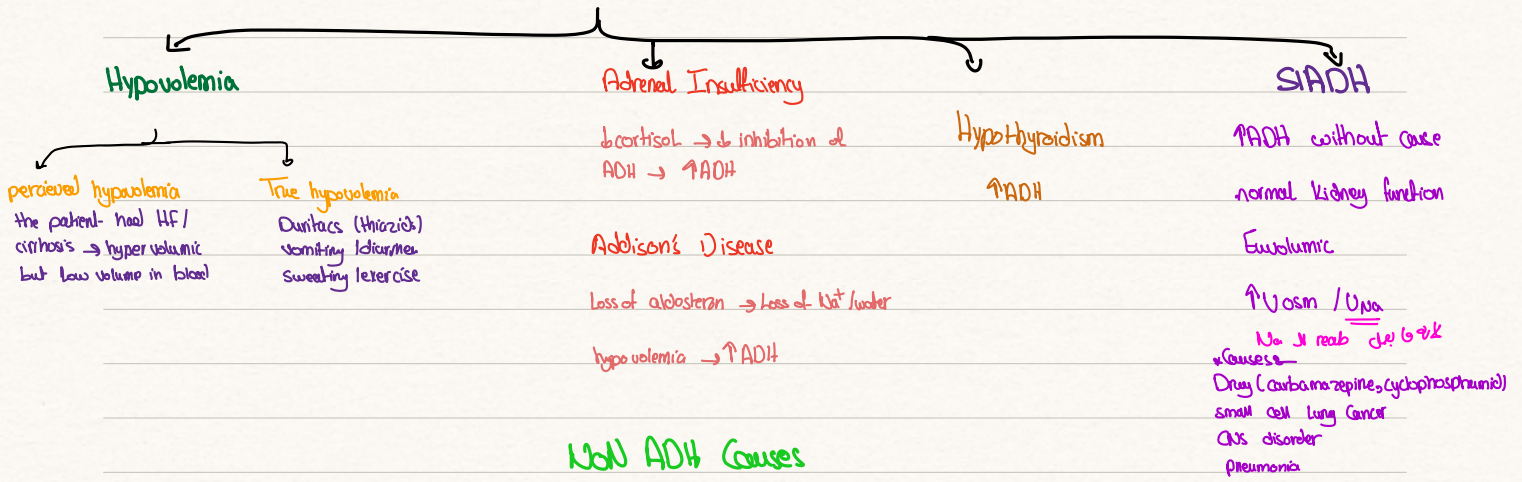 Hypovolemia
percieved hypovolemia
the patient had HF/
cirrhosis → hypervolumic
but low volume in blood
True hypovolemia
Duritacs (thiazids)
vomiting /diarrhea
sweating /exercise
Adrenal Insufficiency
↓cortisol → ↓ inhibition of
ADH → ↑ADH
Addison's Disease
Loss of aldosteron → Loss of Na⁺/water
hypovolemia → ↑ADH
Hypothyroidism
↑ADH
SIADH
↑ADH without cause
normal kidney function
Euvolumic
↑Uosm / UNa
Na ال reab
*Causes
Drug (carbamazepine, cyclophosphamid)
small cell lung cancer
CNS disorder
pneumonia
NON ADH Causes